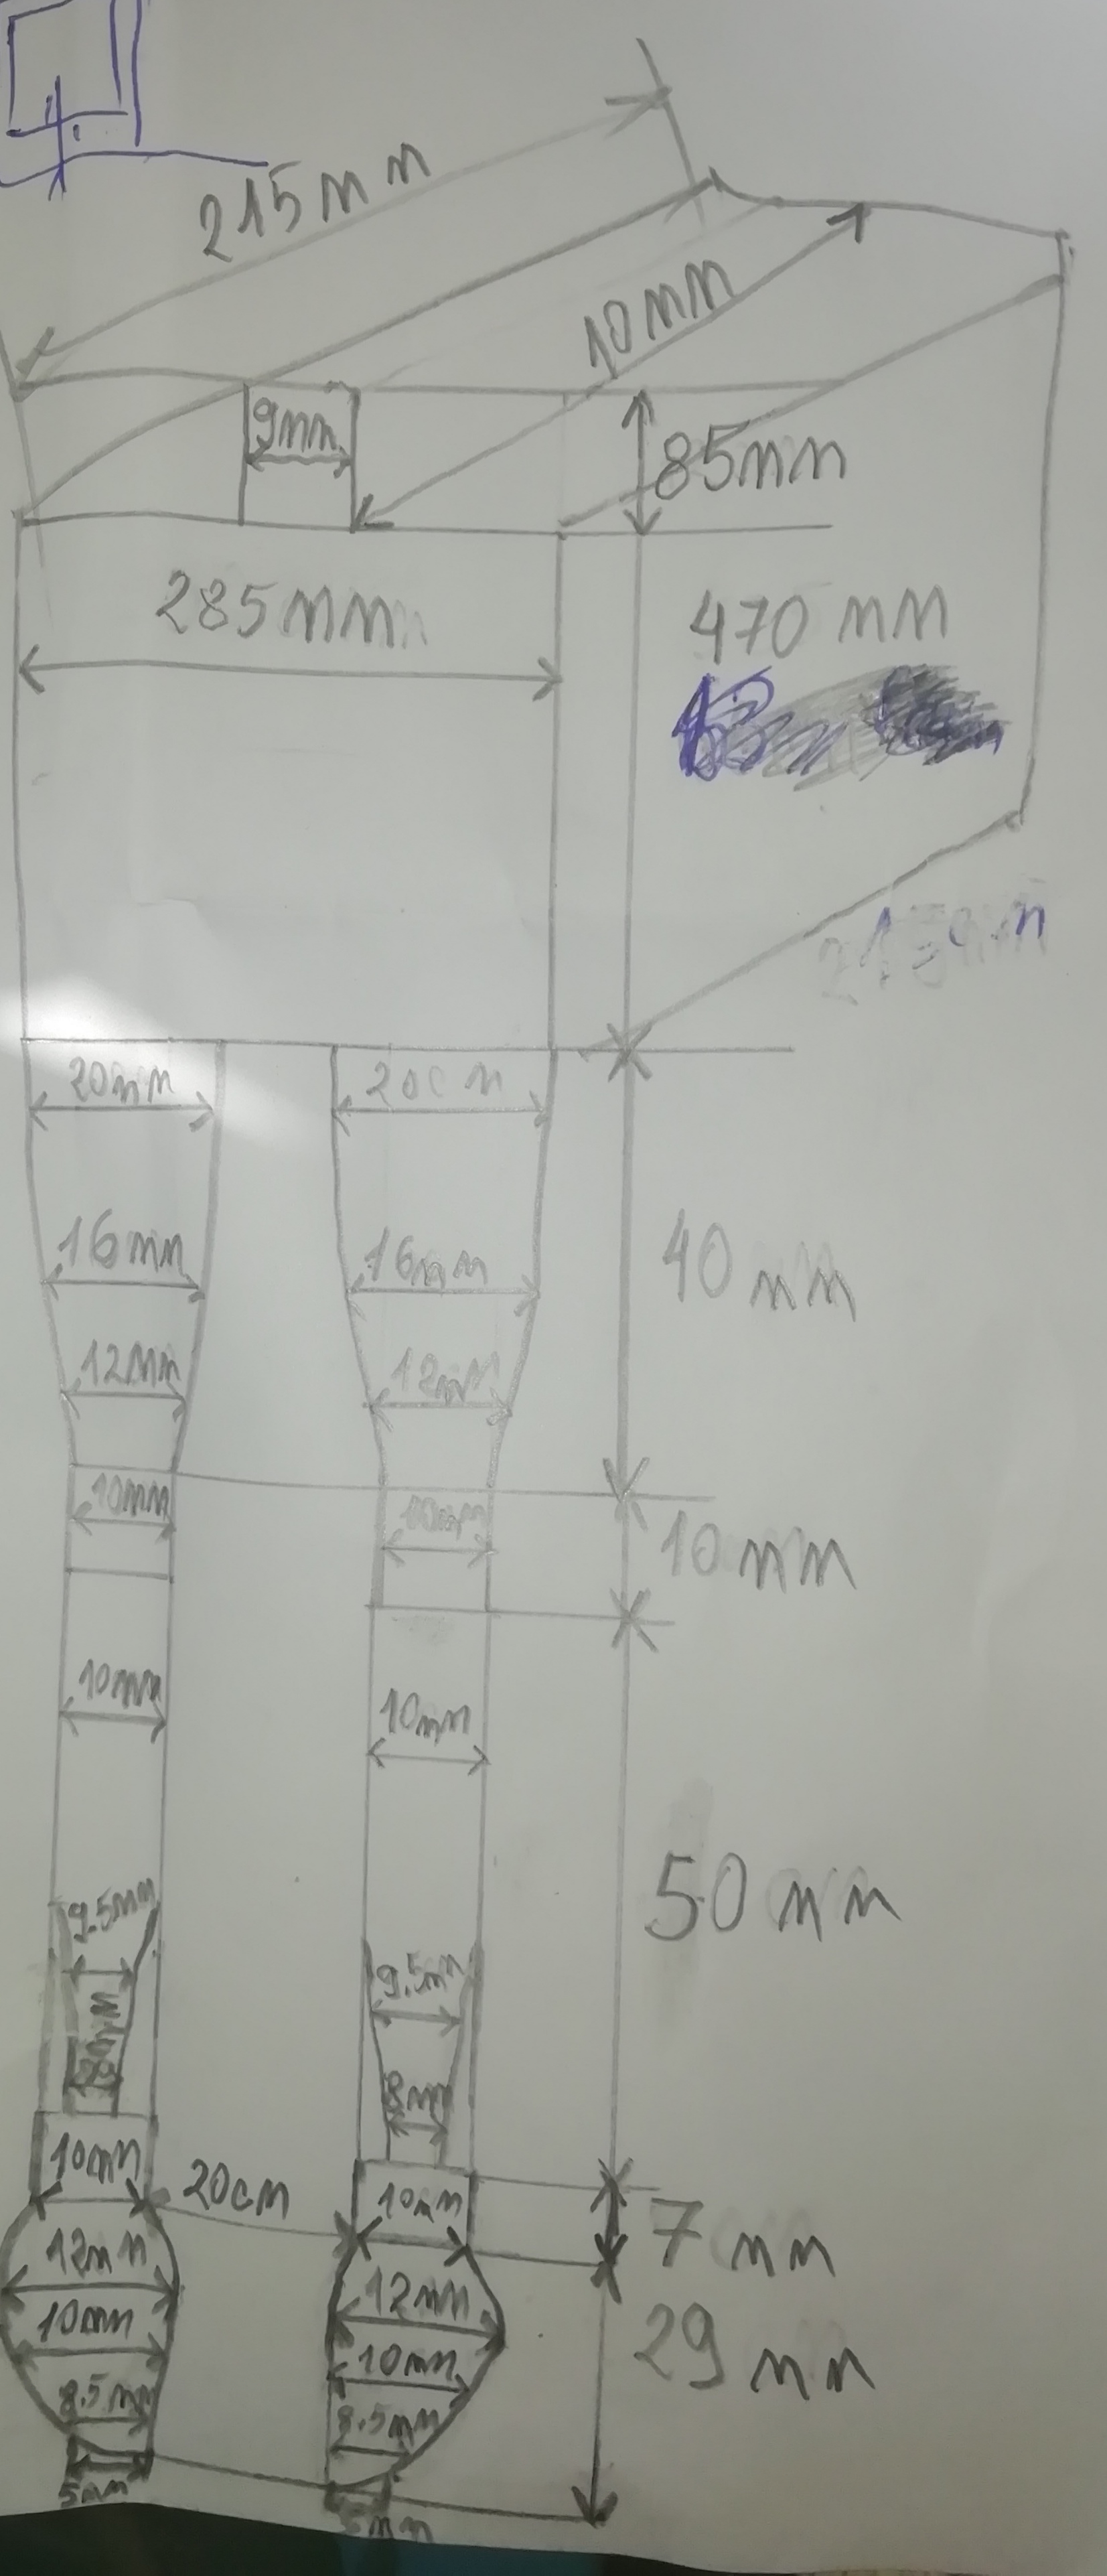 215mm
10mm
9mm
85mm
285mm
470mm
215mm
20mm
16mm
16mm
40mm
12mm
12mm
10mm
10mm
10mm
10mm
10mm
50mm
9.5mm
9.5mm
8mm
10mm
20cm
10mm
7mm
12mm
12mm
10mm
10mm
29mm
8.5mm
8.5mm
5mm
5mm